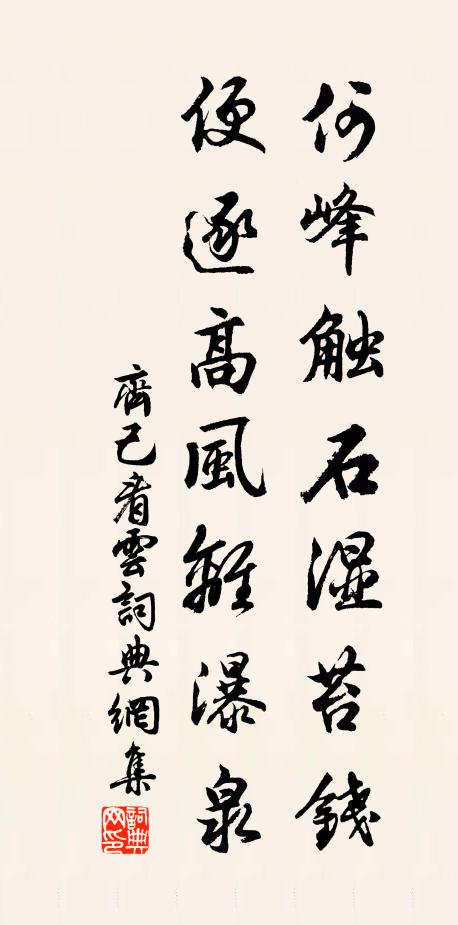 何峰触石湿苔錢
便逐高風離瀑泉
齊己看雲詞典網集
詞典網印